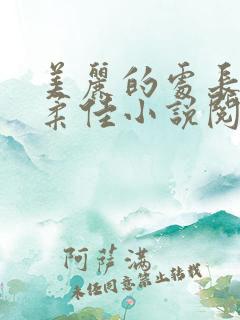 美麗的處長
柔佳小說閱
阿薩滿
未经同意禁止转载